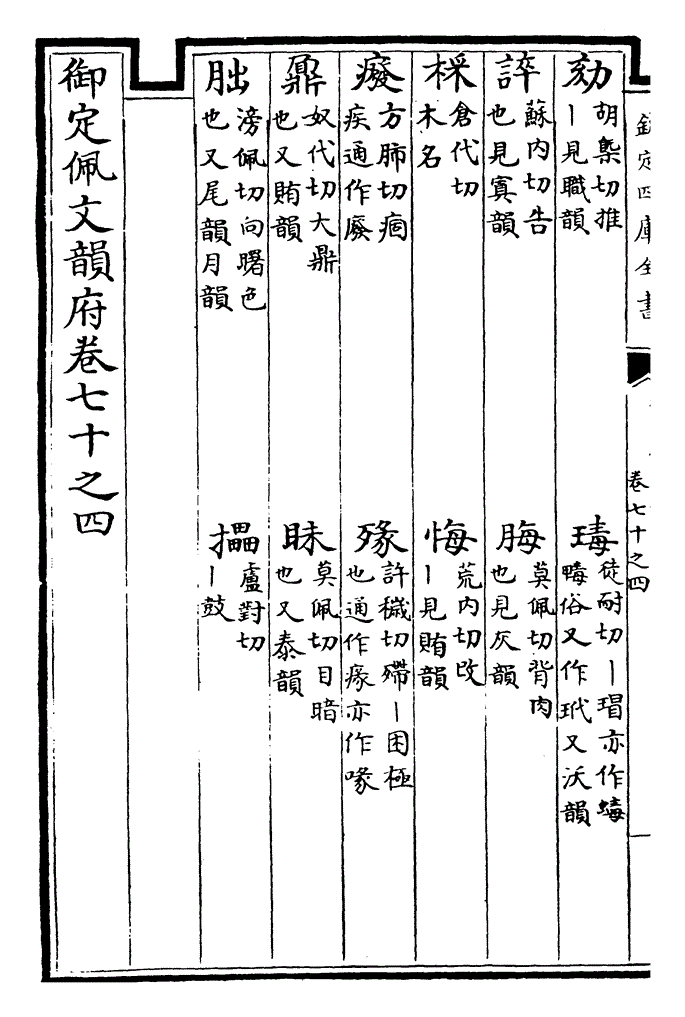 欽定四庫全書
卷七十之四
劾
胡槩切推
丨見職韻
瑇
徒耐切丨瑁亦作蝳
䓯俗又作玳又沃韻
誶
蘇内切告
也見寘韻
脢
莫佩切背肉
也見灰韻
棌
倉代切
木名
悔
荒内切改
丨見賄韻
癈
方肺切痼
疾通作廢
㱵
許穢切殢丨困極
也通作瘃亦作喙
鼐
奴代切大鼎
也又賄韻
眛
莫佩切目暗
也又泰韻
朏
滂佩切向曙色
也又尾韻月韻
攂
盧對切
丨鼓
御定佩文韻府卷七十之四